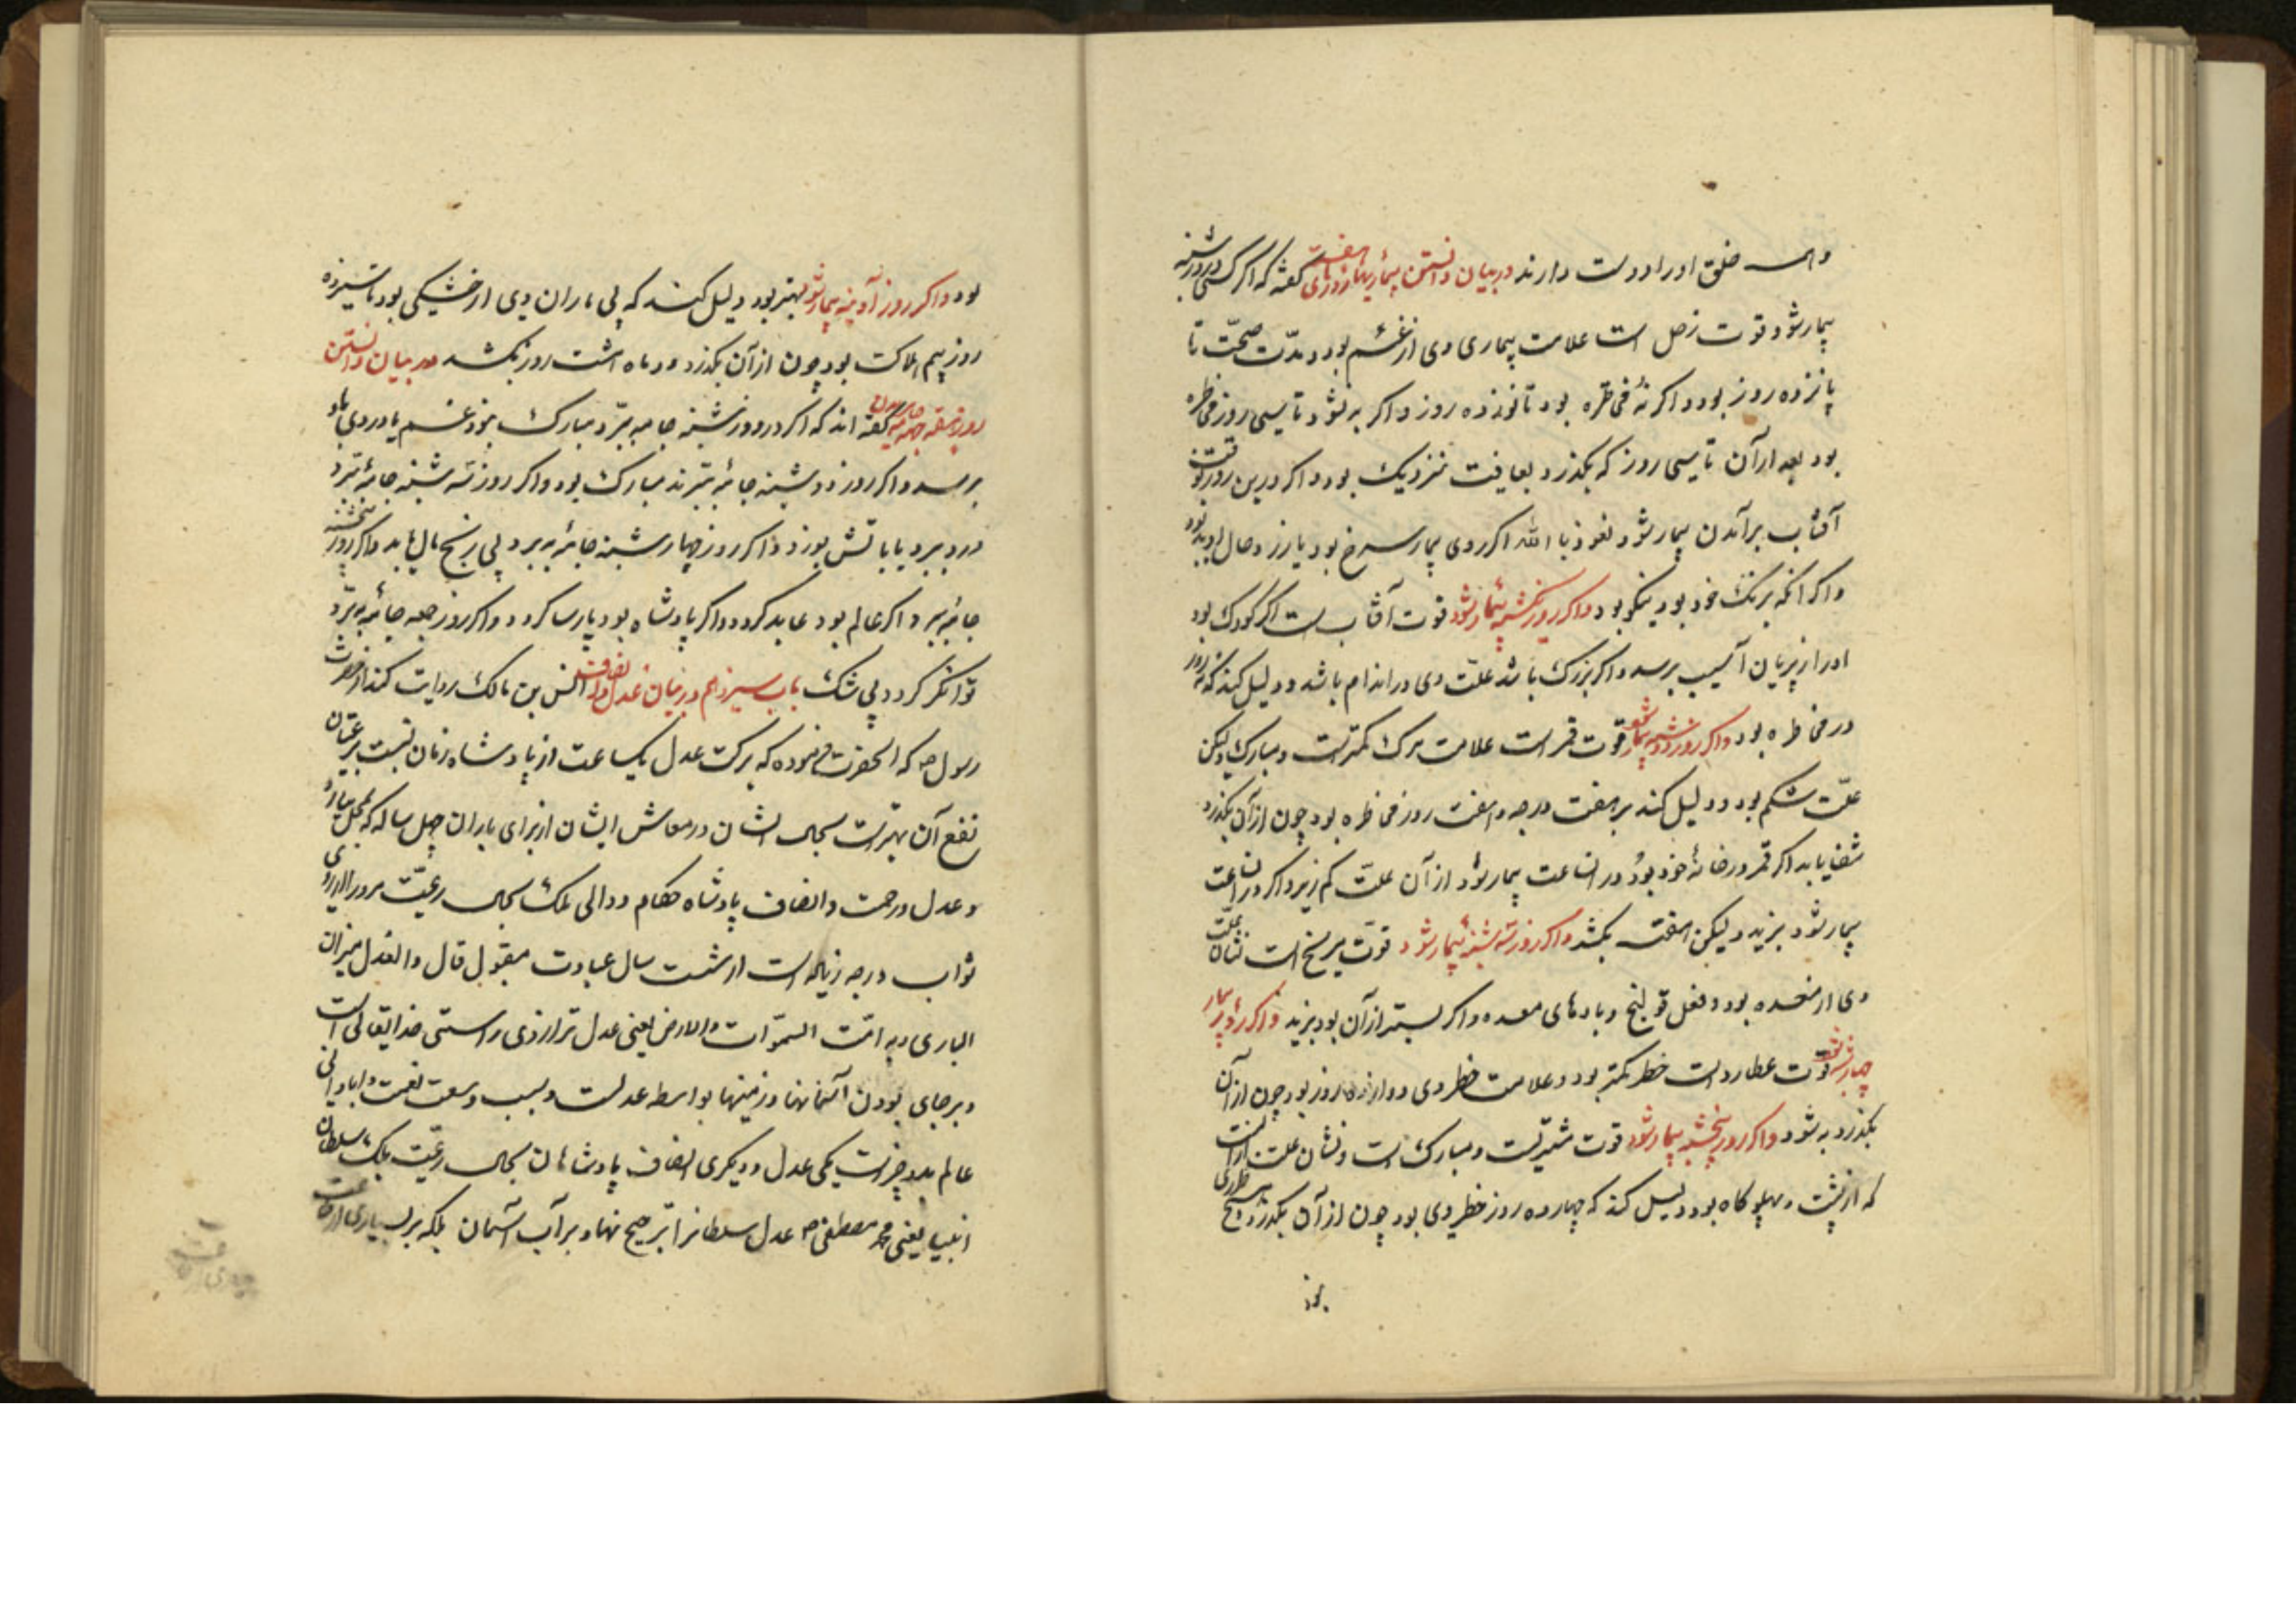 و همه خلق او را دوست دارند در بیان دانستن بیماریها روزهای هفته گفته که اگر کسی در روز شنبه
بیمار شود قوت زحل است علامت بیماری وی از غم بود و مدّت صحّت تا
پانزده روز بود و اگر نه مخاطره بود تا نوزده روز و اگر به نشود تا سی روز مخاطره
بود بعد از آن تا سی روز که بگذرد بعافیت نزدیک بود و اگر درین روز وقت
آفتاب برآمدن بیمار شود نعوذ با الله اگر روی بیمار سرخ بود یا زرد حال او بد بود
و اگر آنکه برنک خود بود نیکو بود و اگر روز یکشنبه بیمار شود قوت آفتاب است اگر کودک بود
او را از پریان آسیب برسد و اگر بزرک باشد علّت وی در اندام باشد و دلیل کند که نه روز
در مخاطره بود و اگر روز دوشنبه بیمار شود قوت قمر است علامت مرک کمتر است و مبارک ولیکن
علّت شکم بود و دلیل کند بر هفت درجه و هفت روز مخاطره بود چون از آن بگذرد
شفا یابد اگر قمر در خانهٔ خود بود در آن ساعت بیمار شود از آن علّت کم زید و اگر در آن ساعت
بیمار شود بزید ولیکن هفته بکشد و اگر روز سه شنبه بیمار شود قوّت مریخ است نشان علّت
وی از معده بود و فعل قولنج و بادهای معده و اگر بستر از آن بود بزید و اگر روز
چهارشنبه بیمار شود قوّت عطارد است خطر کمتر بود و علامت خطر وی دوازده روز بود چون از آن
بگذرد به شود و اگر روز پنجشنبه بیمار شود قوت مشتریست و مبارک است و نشان علت آنست
که از پشت و پهلو کاه بود و دلیل کند که چهارده روز خطر وی بود چون از آن بگذرد هیچ خطری
نبود
بود و اگر روز آدینه بیمار شود بهتر بود دلیل کند که بی ماران وی از خشکی بود تا سیزده
روز بیم هلاکت بود چون از آن بگذرد و در ماه شست روز بکشد در بیان دانستن
روز هفته جامه بریدن گفته اند که اگر در روز شنبه جامه ببرّد مبارک نبود غم یا دردی باو
برسد و اگر روز دوشنبه جامهٔ ببرند مبارک بود و اگر روز سه شنبه جامهٔ ببرد
درد ببرد یا باتش بسوزد و اگر روز چهارشنبه جامهٔ به برد بی رنج مال یابد و اگر روز پنجشنبه
جامهٔ ببرد اگر عالم بود عابد گردد و اگر پادشاه بود پارسا گردد و اگر روز جمعه جامهٔ به برّد
توانگر گردد بی شک باب سیزدهم در بیان عدل و انصاف انس بن مالک روایت کند از حضرت
رسول ص که آنحضرت فرموده که برکت عدل یکساعت از پادشاه زمان نسبت بر رعیّتان
نفع آن بهتر است بحال ایشان در معاش ایشان از برای باران چهل ساله که بمحل ببارد
و عدل و رحمت و انصاف پادشاه حکام و والی ملک بحال رعیّت
ثواب درجه زیاده است از شصت سال عبادت مقبول قال و العدل میزان
الباری و به اثبت السموّات والارض یعنی عدل ترازوی راستی خدایتعالی است
و برجای بودن آسمانها و زمینها بواسطه عدلست و بسبب وسعت نعمت و آبادانی
عالم بدو چیز است یکی عدل و دیگری انصاف پادشاهان بحال رعیّت بلکه سلطان
انبیا یعنی محمد مصطفی ص عدل سلطانرا ترجیح نهاد بر آب آسمان بلکه بر بسیاری از طاعت